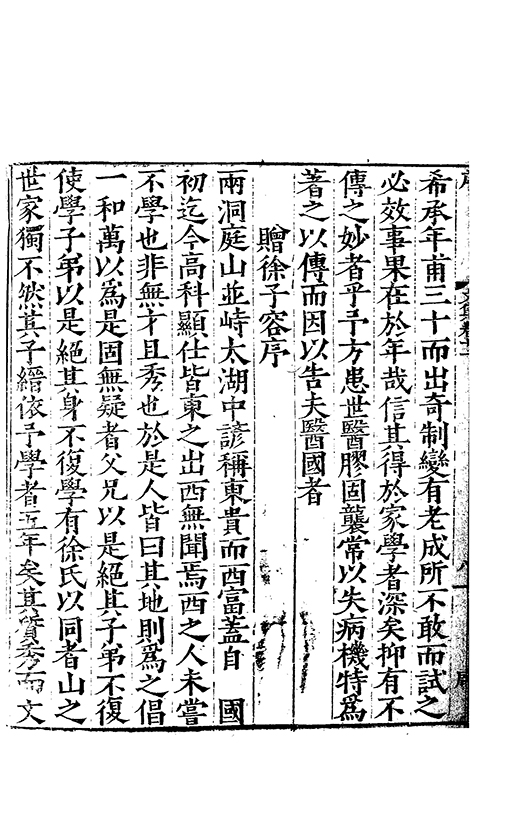 希承年甫三十而出奇制變有老成所不敢而試之
必效事果在於年哉信其得於家學者深矣抑有不
傳之妙者乎予方患世醫膠固襲常以失病機特爲
著之以傳而因以告夫醫國者
贈徐子容序
兩洞庭山並峙太湖中諺稱東貴而西富蓋自 國
初迄今高科顯仕皆東之出西無聞焉西之人未嘗
不學也非無才且秀也於是人皆曰其地則爲之倡
一和萬以爲是固無疑者父兄以是絕其子弟不復
使學子弟以是絕其身不復學有徐氏以同者山之
世家獨不然其子縉依予學者五年矣其質秀而文